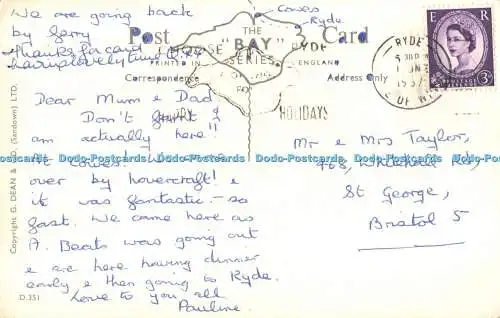 We are going back
by ferry
Thanks for card
Cowes
Ryde
Post Card
THE "BAY" SERIES
PRINTED IN
ENGLAND
Correspondence
Address Only
RYDE
HOLIDAYS
E R
POSTAGE
REVENUE
3D
RYDE
1 JNE
OF W
Dear Mum & Dad
Don't faint I
am actually here!!
at Cowes.
over by hovercraft! &
it was fantastic — so
fast. We came here as
A. Beats was going out
& are here having dinner
early & then going to Ryde.
Love to you all
Pauline.
Mr & Mrs Taylor,
Rd,
St George,
Bristol 5
Copyright G. DEAN & (Sandown) LTD.
D.351
Dodo-Postcards